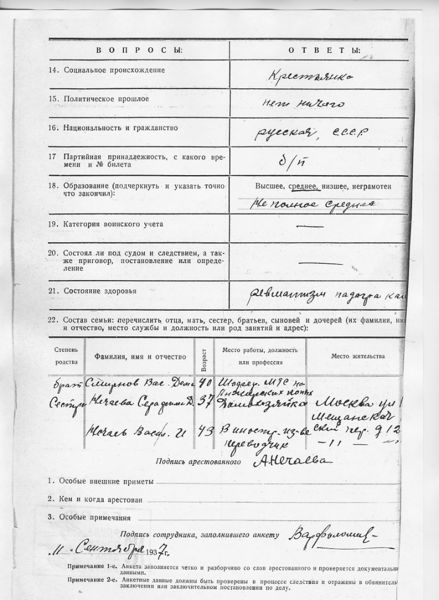 ВОПРОСЫ: ОТВЕТЫ:
14. Социальное происхождение Крестьянка
15. Политическое прошлое нет ничего
16. Национальность и гражданство русская, СССР
17 Партийная принадлежность, с какого вре-
мени и № билета б/п
18. Образование (подчеркнуть и указать точно Высшее, среднее, низшее, неграмотен
что закончил): Не полное среднее
19. Категория воинского учета —
20. Состоял ли под судом и следствием, а так-
же приговор, постановление или опреде-
ление —
21. Состояние здоровья ревматизм подагра
22. Состав семьи: перечислить отца, мать, сестер, братьев, сыновей и дочерей (их фамилия, имя
и отчество, место службы и должность или род занятий и адрес):
Степень родства Фамилия, имя и отчество Возраст Место работы, должность или профессия Место жительства
брат Смирнов Вас. 40 на
Сестра Нечаева Серафима Д. 37 Домохозяйка Москва ул
Мещанская
Нечаев Васил. И 43 Иностр. пер. д 12
переводчик —"— —
Подпись арестованного АНечаева
1. Особые внешние приметы
2. Кем и когда арестован
3. Особые примечания
Подпись сотрудника, заполнившего анкету
„11 „ Сентября 1937г.
Примечание 1-е. Анкета заполняется четко и разборчиво со слов арестованного и проверяется документаль
данными.
Примечание 2-е. Анкетные данные должны быть проверены в процессе следствия и отражены в обвинител
заключении или заключительном постановлении по делу.